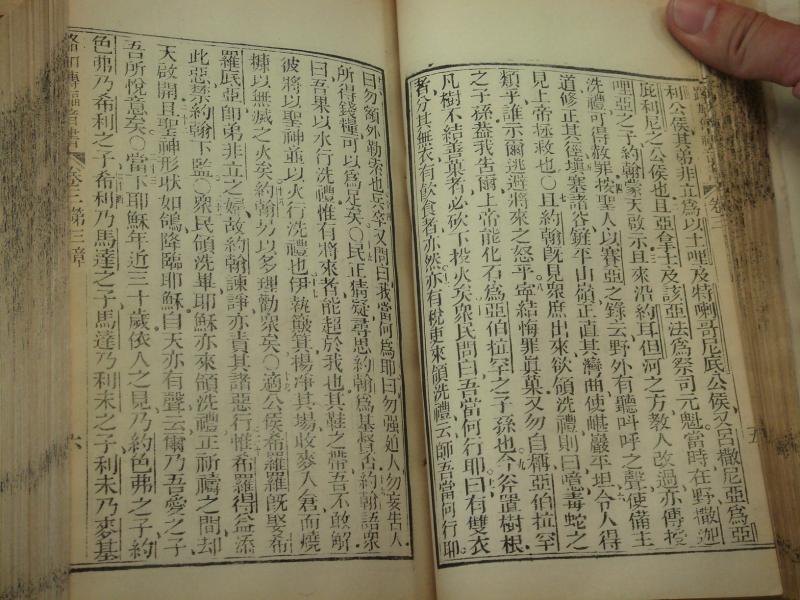 利公侯其弟非立爲以土哩及特喇哥尼氐公侯又呂撒尼亞爲亞
庇利尼之公侯也且亞拿士及該亞法爲祭司元魁當時在野撒迦
哩亞之子約翰蒙天啟示且來沿約耳但河之方教人改過亦傳授
洗禮可得赦罪按聖人以賽亞之錄云野外有聽呌呼之聲使備主
道修正其徑塡塞諸谷鏟平山嶺正直其灣曲使崎巖平坦令人得
見上帝拯救也○且約翰旣見眾庶出來欲領洗禮則曰噫毒蛇之
類乎誰示爾逃避將來之怒乎寧結悔罪眞菓又勿自稱亞伯拉罕
之子孫葢我吿爾上帝能化石爲亞伯拉罕之子孫也今斧置樹根
凡樹不結善菓者必砍下投火矣眾民問曰吾當何行耶曰有雙衣
者分其無衣有飲食者亦然亦有稅吏來領洗禮云師吾當何行耶
五
曰勿額外勒索也兵卒又問曰我當何爲耶曰勿强迫人勿妄吿人
所得錢糧可以爲足矣○民正猜疑尋思約翰爲基督否約翰語眾
曰吾果以水行洗禮惟有將來者能超於我也其鞋之帶吾不敢解
彼將以聖神並以火行洗禮也伊執簸箕揚淨其塲收麥入倉而燒
糠以無滅之火矣約翰乃以多理勸眾矣○適公侯希羅羅旣娶希
羅氐亞師弟非立之婦故約翰諫諍亦責其諸惡行惟希羅得益添
此惡禁約翰下監○眾民領洗畢耶穌亦來領洗禮正祈禱之間却
天啟開且聖神形狀如鴿降臨耶穌自天亦有聲云爾乃吾愛之子
吾所悅意矣○當下耶穌年近三十歲依人之見乃約色弗之子約
色弗乃希利之子希利乃馬達之子馬達乃利未之子利未乃麥基
路加傳福音書 卷三第三章 六